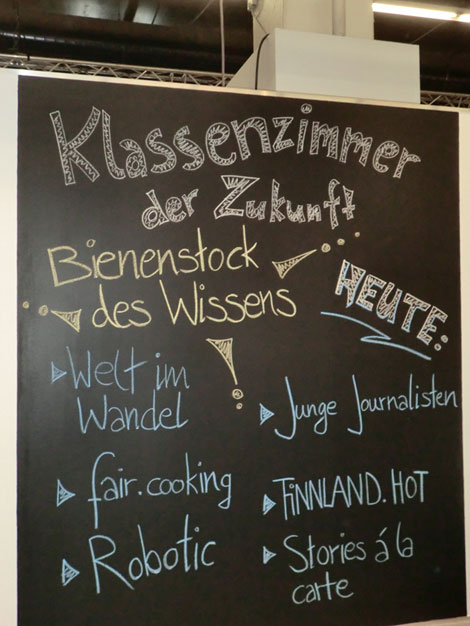 Klassenzimmer
der Zukunft
Bienenstock
des Wissens
HEUTE:
Welt im
Wandel
fair.cooking
Robotic
Junge Journalisten
FiNNLAND.HOT
Stories á la
carte